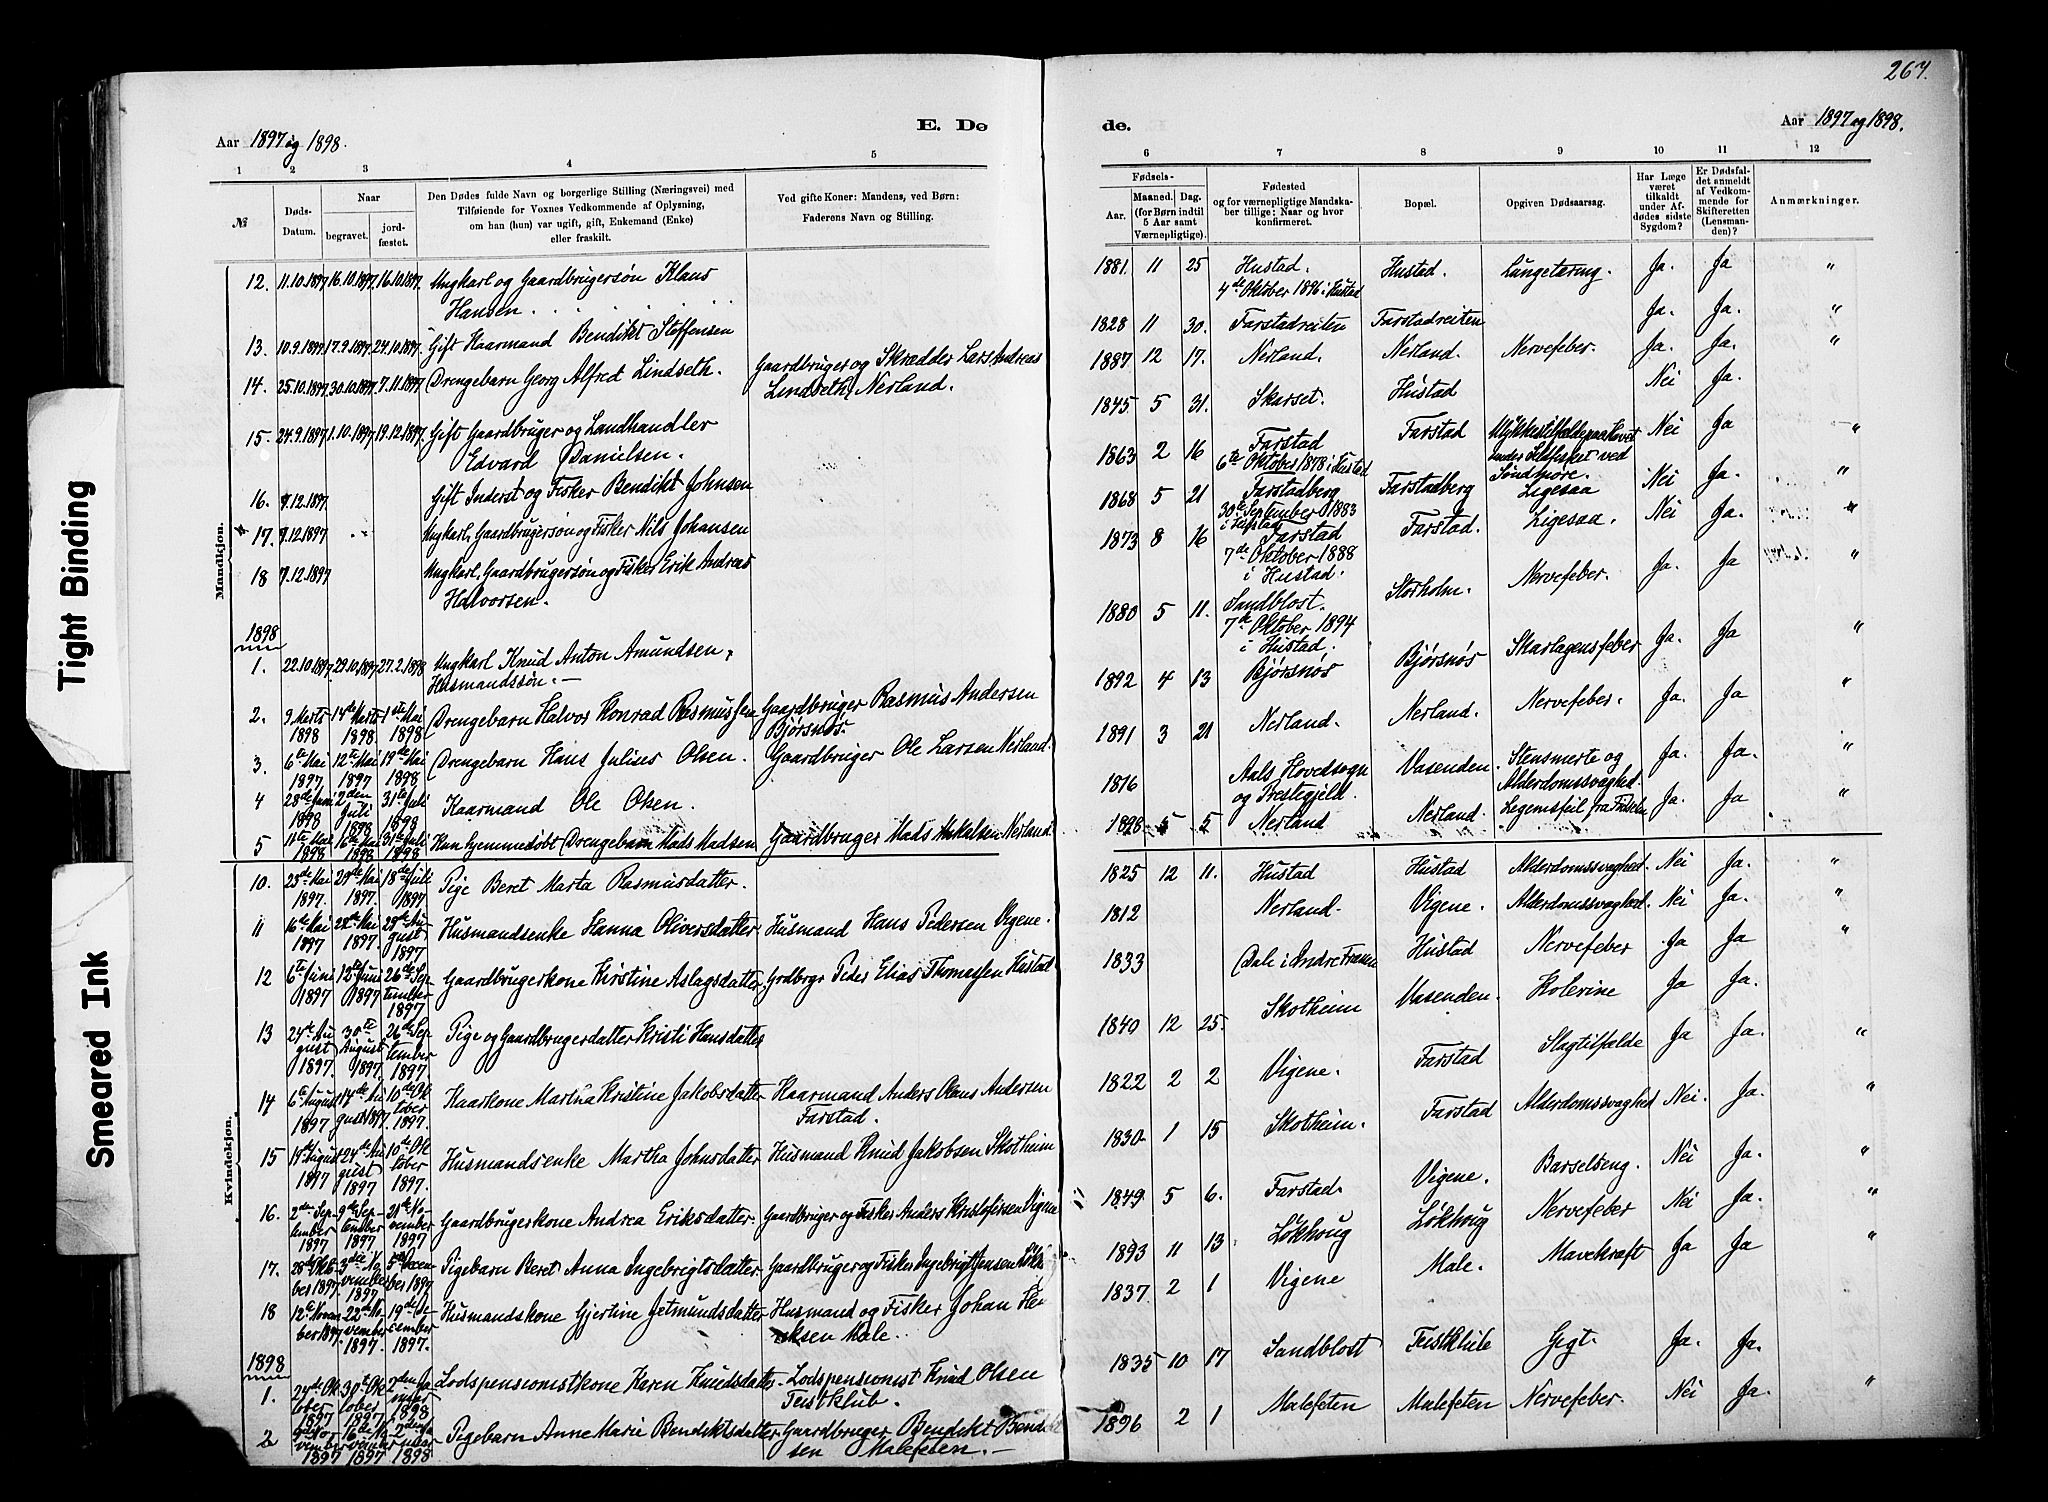 267.
Aar 1897 og 1898.
E. Dø
de.
Aar 1897 og 1898.
1 2 3 4 5
6 7 8 9 10 11 12
№
Døds-Datum.
Naar
begravet.
jord-fæstet.
Den Dødes fulde Navn og borgerlige Stilling (Næringsvei) med
Tilføiende for Voxnes Vedkommende af Oplysning,
om han (hun) var ugift, gift, Enkemand (Enke)
eller fraskilt.
Ved gifte Koner: Mandens, ved Børn:
Faderens Navn og Stilling.
Fødsels-
Aar.
Maaned. Dag.
(for Børn indtil
5 Aar samt
Værnepligtige).
Fødested
og for værnepligtige Mandska-
ber tillige: Naar og hvor
konfirmeret.
Bopæl.
Opgiven Dødsaarsag.
Har Læge
været
tilkaldt
under Af-
dødes sidste
Sygdom?
Er Dødsfal-
det anmeldt
af Vedkom-
mende for
Skifteretten
(Lensman-
den)?
Anmærkninger.
Mandkjøn.
12. 11.10.1897 16.10.1897 16.10.1897 Ungkarl og Gaardbrugersøn Klaus
Hansen
1881. 11 25 Hustad. Hustad. Lungetæring. Ja. Ja "
4de Oktober 1896 i Hustad
13. 10.9.1897 17.9.1897 24.10.1897 Gift Kaarmand Bendikt Stoffensen
1828 11 30. Farstadreiten Farstadreiten Ja. Ja. "
14. 25.10.1897 30.10.1897 7.11.1897 Drengebarn Georg Alfred Lindseth. Gaardbruger og Skrædder Lars Andreas
Lindseth, Nerland.
1887 12 17. Nerland. Nerland. Nervefeber. Ja. Ja. "
15. 24.9.1897 1.10.1897 19.12.1897 Gift Gaardbruger og Landhandler
Edvard Danielsen.
1845 5 31. Skarset. Hustad Nei Ja.
16. 7.12.1897 Gift Inderst og Fisker Bendikt Johnsen
1863 2 16 Farstad Farstad Nei Ja "
6te Oktober 1878 i Hustad
ved
Søndmøre.
17. 7.12.1897 Ungkarl, Gaardbrugersøn og Fisker Nils Johansen
1868 5 21 Farstadberg Farstadberg Ligesaa Nei Ja. "
30te September 1883
18 7.12.1897 Ungkarl, Gaardbrugersøn og Fisker Erik Andreas
Halvorsen.
1873 8 16 Farstad Farstad. Ligesaa. Nei Ja. "
7de Oktober 1888
i Hustad.
1898
1. 22.10.1897 29.10.1897 27.2.1898 Ungkarl Knud Anton Amundsen,
Husmandssøn.
1880 5 11. Sandblost. Storholm. Nervefeber. Ja. Ja "
7de Oktober 1894
i Hustad.
2. 9 Marts 1898 14de Marts 1898. 1ste Mai 1898 Drengebarn Halvor Konrad Rasmussen Gaardbruger Rasmus Andersen
Bjørsnøs.
1892 4 13 Bjørsnøs Bjørsnøs Skarlagensfeber Ja. Ja. "
3. 6te Mai 1897 12te Mai 1897 19de Mai 1898 Drengebarn Hans Julius Olsen. Gaardbruger Ole Larsen Nerland.
1891 3 21 Nerland. Nerland. Nervefeber. Ja. Ja "
4 28de Juni 1898 2den Juli 1898 31te Juli 1898 Kaarmand Ole Olsen.
1816 Aals Hovedsogn Vasenden. Stensmerte og Ja. Ja. "
og Prestegjeld. Alderdomssvaghed.
5 11te Mai 1898 16de Mai 1898 31te Juli 1898 Kun hjemmedøbt Drengebarn Mads Madsen Gaardbruger Mads Nerland
1898 5 5 Nerland Nerland. Legemsfeil fra Fødselen Ja. Ja "
Kvindekjøn.
10. 23de Mai 1897. 29de Mai 1897. 18de Juli 1897 Pige Beret Marta Rasmusdatter.
1825 12 11. Hustad Hustad Alderdomssvaghed. Nei Ja. "
11 16de Mai 1897 22de Mai 1897. 29de August 1897 Husmandsenke Hanna Oliversdatter Husmand Hans Pedersen Vigene.
1812 Nerland. Vigene. Alderdomssvaghed. Nei Ja. "
12 6te Juni 1897 12te Juni 1897 26de September 1897 Gaardbrugerkone Kirstine Aslagsdatter Grdbrgr Peder Elias Thomassen Hustad
1833 Dale i Indre Frænen Hustad Nervefeber Ja Ja "
13 24de August 1897. 30te August 1897. 26de September 1897 Pige og Gaardbrugerdatter Kristi Hansdatter
1840 12 25. Skotheim Vasenden. Kolerine Ja Ja.
14 6te August 1897 14de August 1897 10de Oktober 1897. Kaarkone Martha Kristine Jakobsdatter Kaarmand Anders Olaus Andersen
Farstad.
1822 2 2 Vigene. Farstad Slagtilfælde Ja Ja. "
15 19de August 1897 24de August 1897 10de Oktober 1897. Husmandsenke Martha Johnsdatter Husmand Knud Jakobsen Skotheim
1830 1 15 Skotheim. Farstad Alderdomssvaghed Nei. Ja. "
16. 2den September 1897 9de September 1897 21de November 1897 Gaardbrugerkone Andrea Eriksdatter. Gaardbruger og Fisker Anders Kristofersen Vigene
1849 5 6. Farstad. Vigene. Barselseng. Nei Ja. "
17. 28de Oktober 1897 3die November 1897 5te December 1897 Pigebarn Beret Anna Ingebrigtsdatter Gaardbruger og Fisker Ingebrigt Jensen
1893 11 13 Løkhoug Løkhoug Nervefeber Nei Ja. "
18 12te November 1897. 22de November 1897. 19de December 1897. Husmandskone Gjertine Jetmundsdatter Husmand og Fisker Johan Hen
riksen Male.
1837 2 1 Vigene Male. Mavekræft Ja Ja "
1898
1. 24de Oktober 1897 30te Oktober 1897 2den Januar 1898 Lodspensionistkone Karen Knudsdatter Lodspensionist Knud Olsen
Teistklub.
1835 10 17 Sandblost Teistklub Gigt. Ja. Ja.
2 9de November 1897 16de November 1897 2den Januar 1898 Pigebarn Anne Marie Bendiktsdatter Gaardbruger Bendikt Bendikt
sen Malefeten.
1896 2 1 Malefeten Malefeten Nervefeber. Nei Ja. "
Tight Binding
Smeared Ink